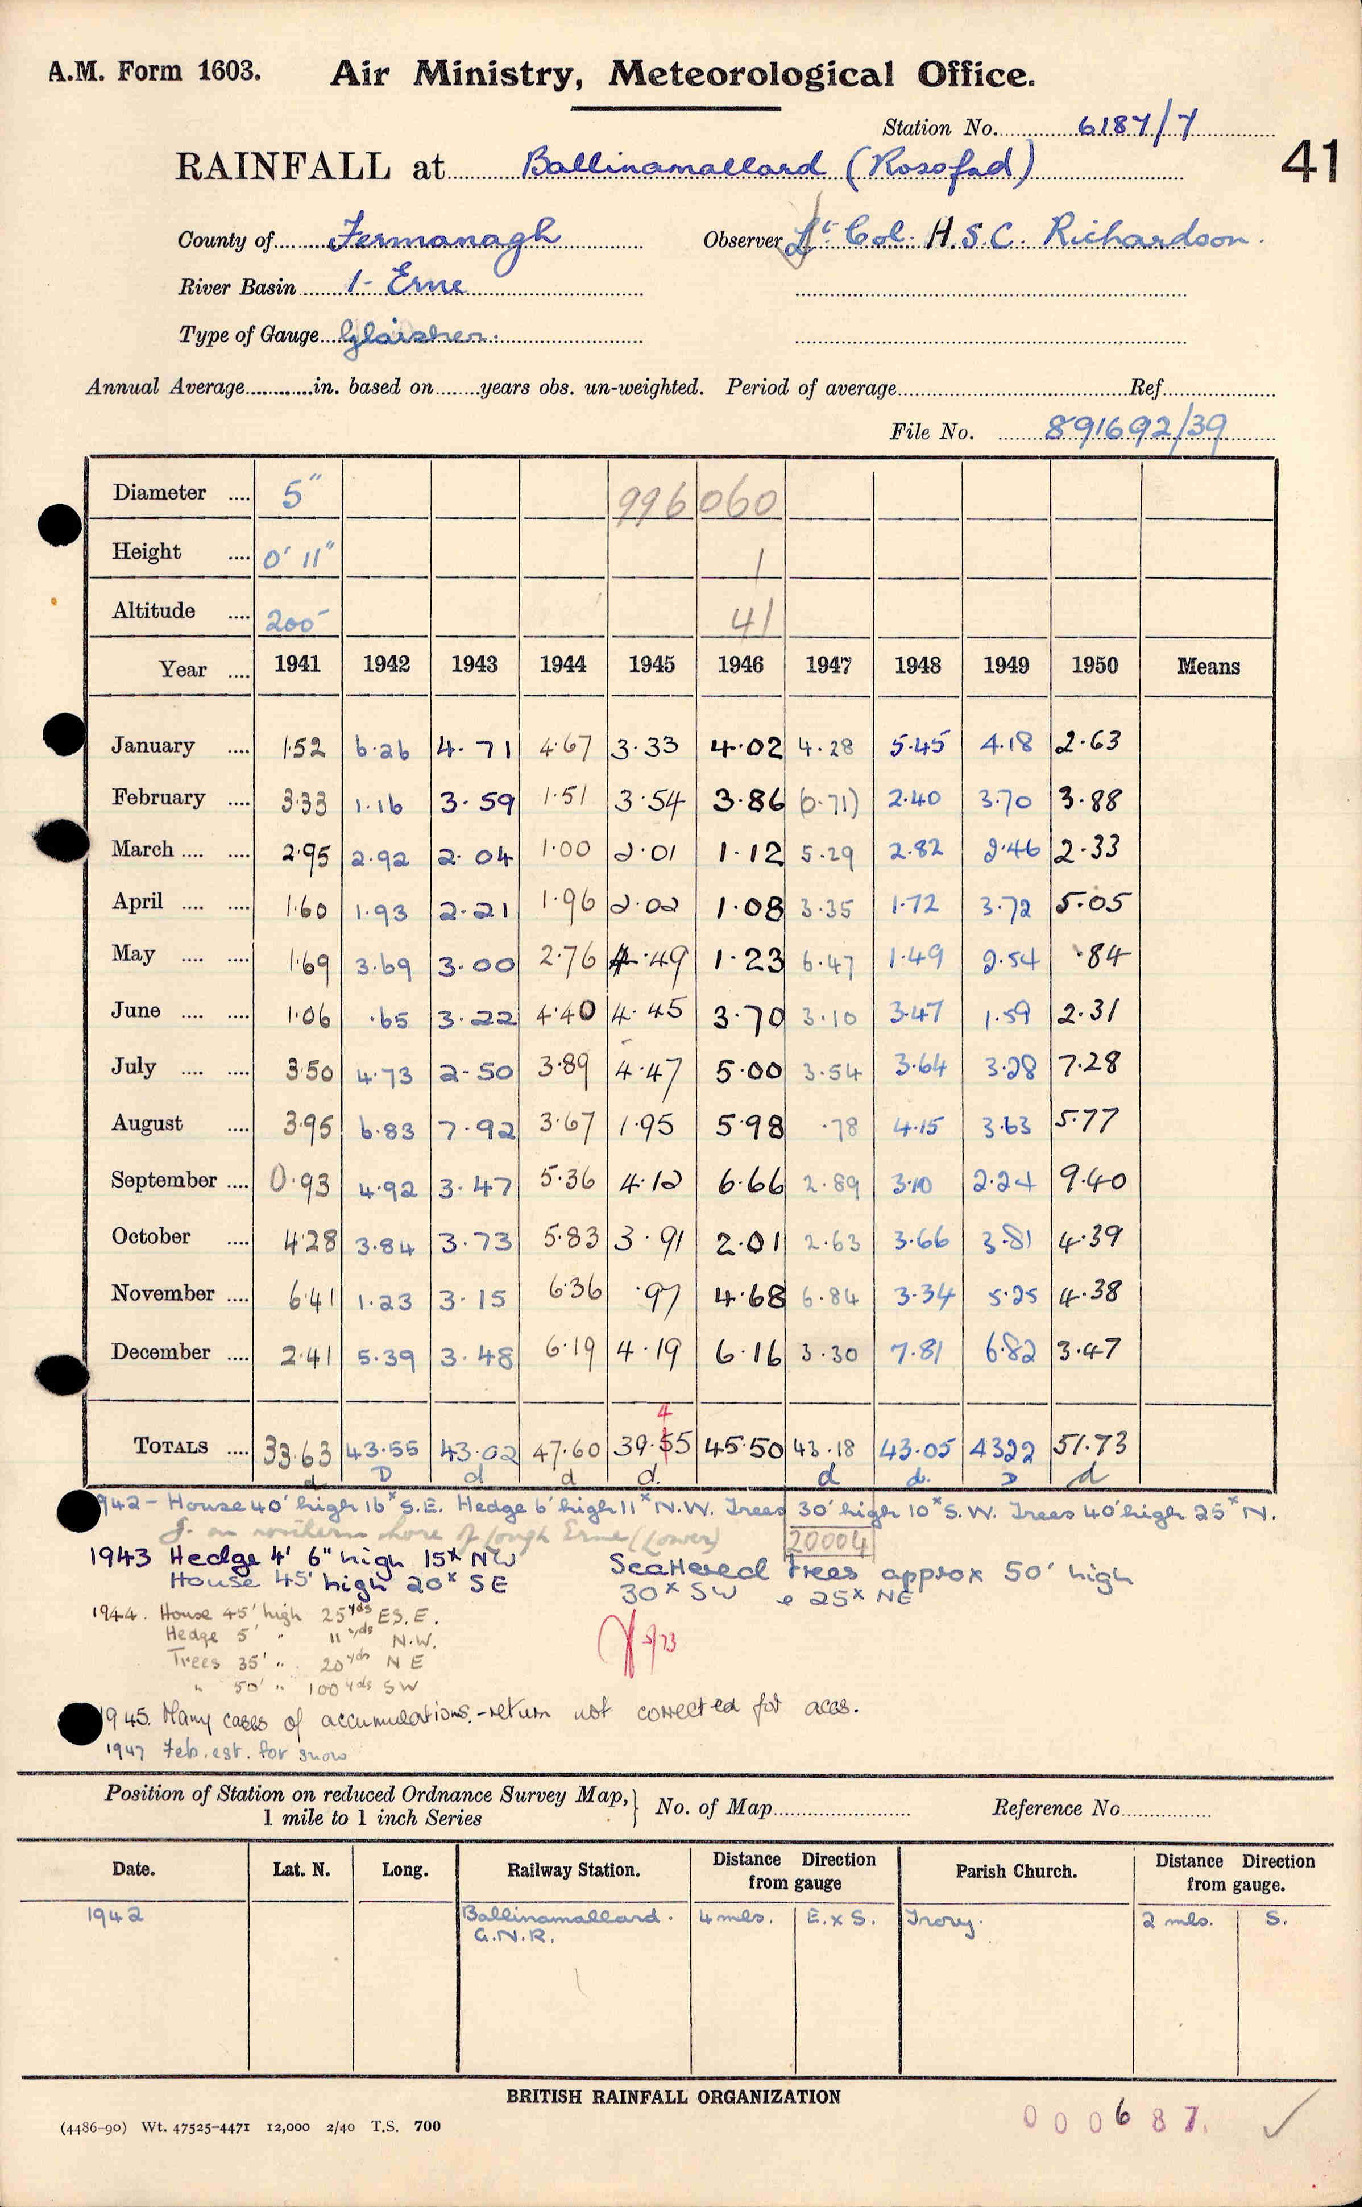 A.M. Form 1603. Air Ministry, Meteorological Office.
Station No. 6187/7
RAINFALL at Ballinamallard (Rosofad) 41
County of Fermanagh Observer Lt Col. H.S.C. Richardson.
River Basin 1- Erne
Type of Gauge Glaisher.
Annual Average............in. based on........years obs. un-weighted. Period of average............Ref............
File No. 891692/39
Diameter .... 5" 996060
Height .... 0' 11" 1
Altitude .... 200' 41
Year .... 1941 1942 1943 1944 1945 1946 1947 1948 1949 1950 Means
January .... 1.52 6.26 4.71 4.67 3.33 4.02 4.28 5.45 4.18 2.63
February .... 3.33 1.16 3.59 1.51 3.54 3.86 (0.71) 2.40 3.70 3.88
March .... .... 2.95 2.92 2.04 1.00 2.01 1.12 5.29 2.82 2.46 2.33
April .... .... 1.60 1.93 2.21 1.96 2.02 1.08 3.35 1.72 3.72 5.05
May .... .... 1.69 3.69 3.00 2.76 4.49 1.23 6.47 1.49 2.54 .84
June .... .... 1.06 .65 3.22 4.40 4.45 3.70 3.10 3.47 1.59 2.31
July .... .... 3.50 4.73 2.50 3.89 4.47 5.00 3.54 3.64 3.28 7.28
August .... 3.95 6.83 7.92 3.67 1.95 5.98 .78 4.15 3.63 5.77
September .... 0.93 4.92 3.47 5.36 4.12 6.66 2.89 3.10 2.24 9.40
October .... 4.28 3.84 3.73 5.83 3.91 2.01 2.63 3.66 3.81 4.39
November .... 6.41 1.23 3.15 6.36 .97 4.68 6.84 3.34 5.25 4.38
December .... 2.41 5.39 3.48 6.19 4.19 6.16 3.30 7.81 6.82 3.47
4
TOTALS .... 33.63 43.55 43.02 47.60 39.55 45.50 43.18 43.05 43.22 51.73
d D d d d. d d. D d
1942 - House 40' high 16x S.E. Hedge 6' high 11x N.W. Trees 30' high 10x S.W. Trees 40' high 25x N.
on western shore of Lough Erne (Lower) 20004
1943 Hedge 4' 6" high 15x NW Scattered trees approx 50' high
House 45' high 20x SE 30x SW & 25x NE
1944. House 45' high 25 yds E S.E.
Hedge 5' " 11 yds N.W.
Trees 35' " 20 yds N E
" 50' " 100 yds SW
5/73
1945. Many cases of accumulations. - return not corrected for accs.
1947 Feb. est. for snow
Position of Station on reduced Ordnance Survey Map, 1 mile to 1 inch Series } No. of Map............ Reference No............
Date. Lat. N. Long. Railway Station. Distance Direction from gauge Parish Church. Distance Direction from gauge.
1942 Ballinamallard. G.N.R. 4 mls. E. x S. Trory. 2 mls. S.
BRITISH RAINFALL ORGANIZATION
(4486-90) Wt. 47525-4471 12,000 2/40 T.S. 700
000687.